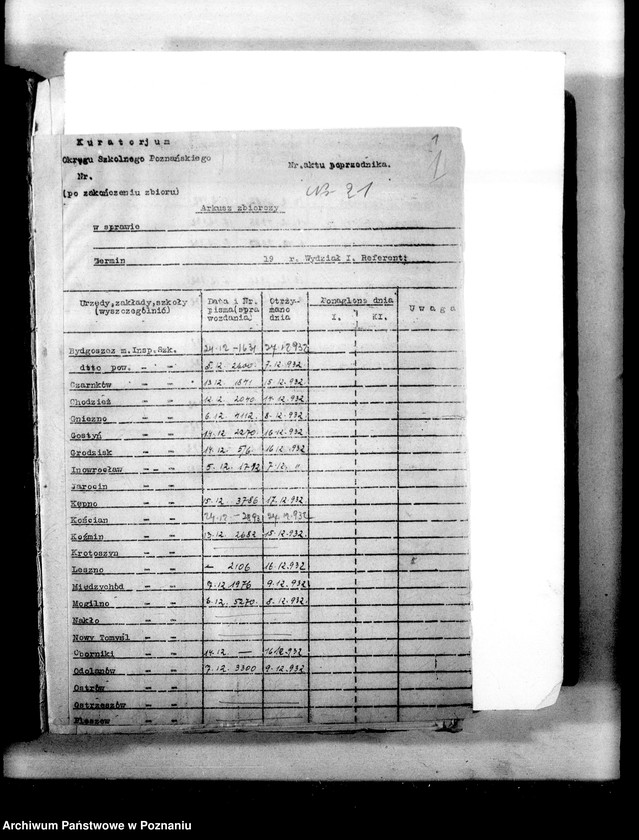 Kuratorjum
Okręgu Szkolnego Poznańskiego
Nr. aktu poprzednika.
Nr.
(po zakończeniu zbioru)
21
1
Arkusz zbiorczy
w sprawie
Termin 19 r. Wydział I. Referent:
Urzędy,zakłady,szkoły (wyszczególnić) Data i Nr. pisma(spra wozdania) Otrzy- mano dnia Ponaglono dnia I. II. Uwaga
Bydgoszcz m. Insp.Szk. 24.12 - 1631 24.12.932
dtto pow. - - 5.12 2600 7.12.932
Czarnków - - 13.12 1841 15.12.932
Chodzież - - 12.2 2040 14.12.932
Gniezno - - 6.12 4112 8.12.932
Gostyń - - 14.12 2270 16.12.932
Grodzisk - - 14.12 16.12.932
Inowrocław - - 5.12 1792 7.12 "
Jarocin - -
Kępno - - 15.12 3786 17.12.932
Kościan - - 24.12 - 24.12.932
Koźmin - - 13.12 2682 15.12.932
Krotoszyn - -
Leszno - - - 2106 16.12.932
Międzychód - - 7.12 1976 9.12.932
Mogilno - - 6.12 5270 8.12.932
Nakło - -
Nowy Tomyśl - -
Oborniki - - 14.12 — 16.12.932
Odolanów - - 7.12 3300 9.12.932
Ostrów - -
Ostrzeszów - -
Pleszew - -
Archiwum Państwowe w Poznaniu